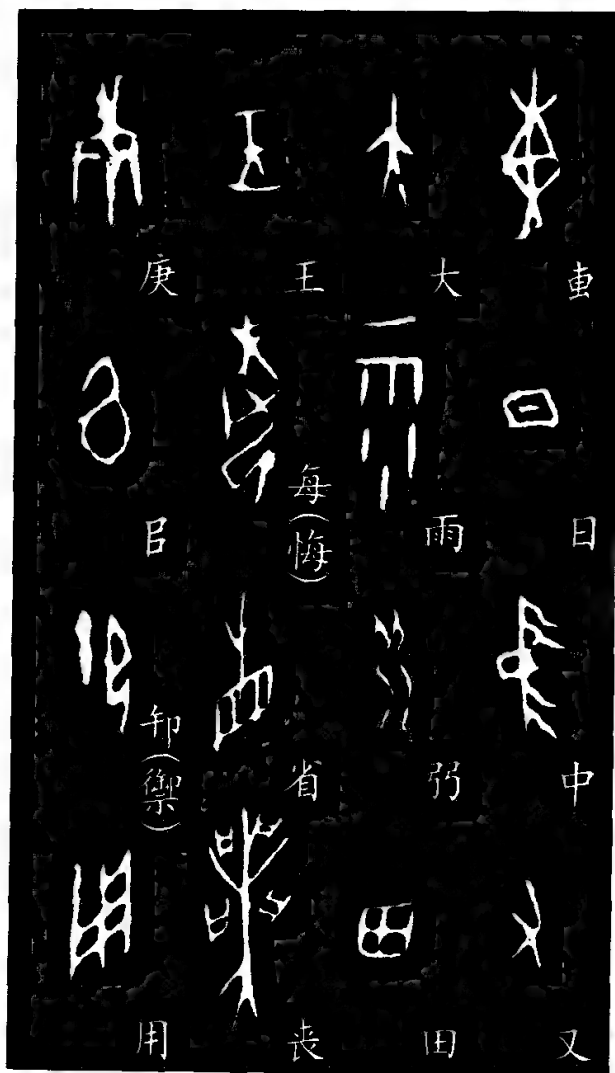 叀日中又
大雨弜田
王每(悔)省丧
庚㠯卸(禦)用